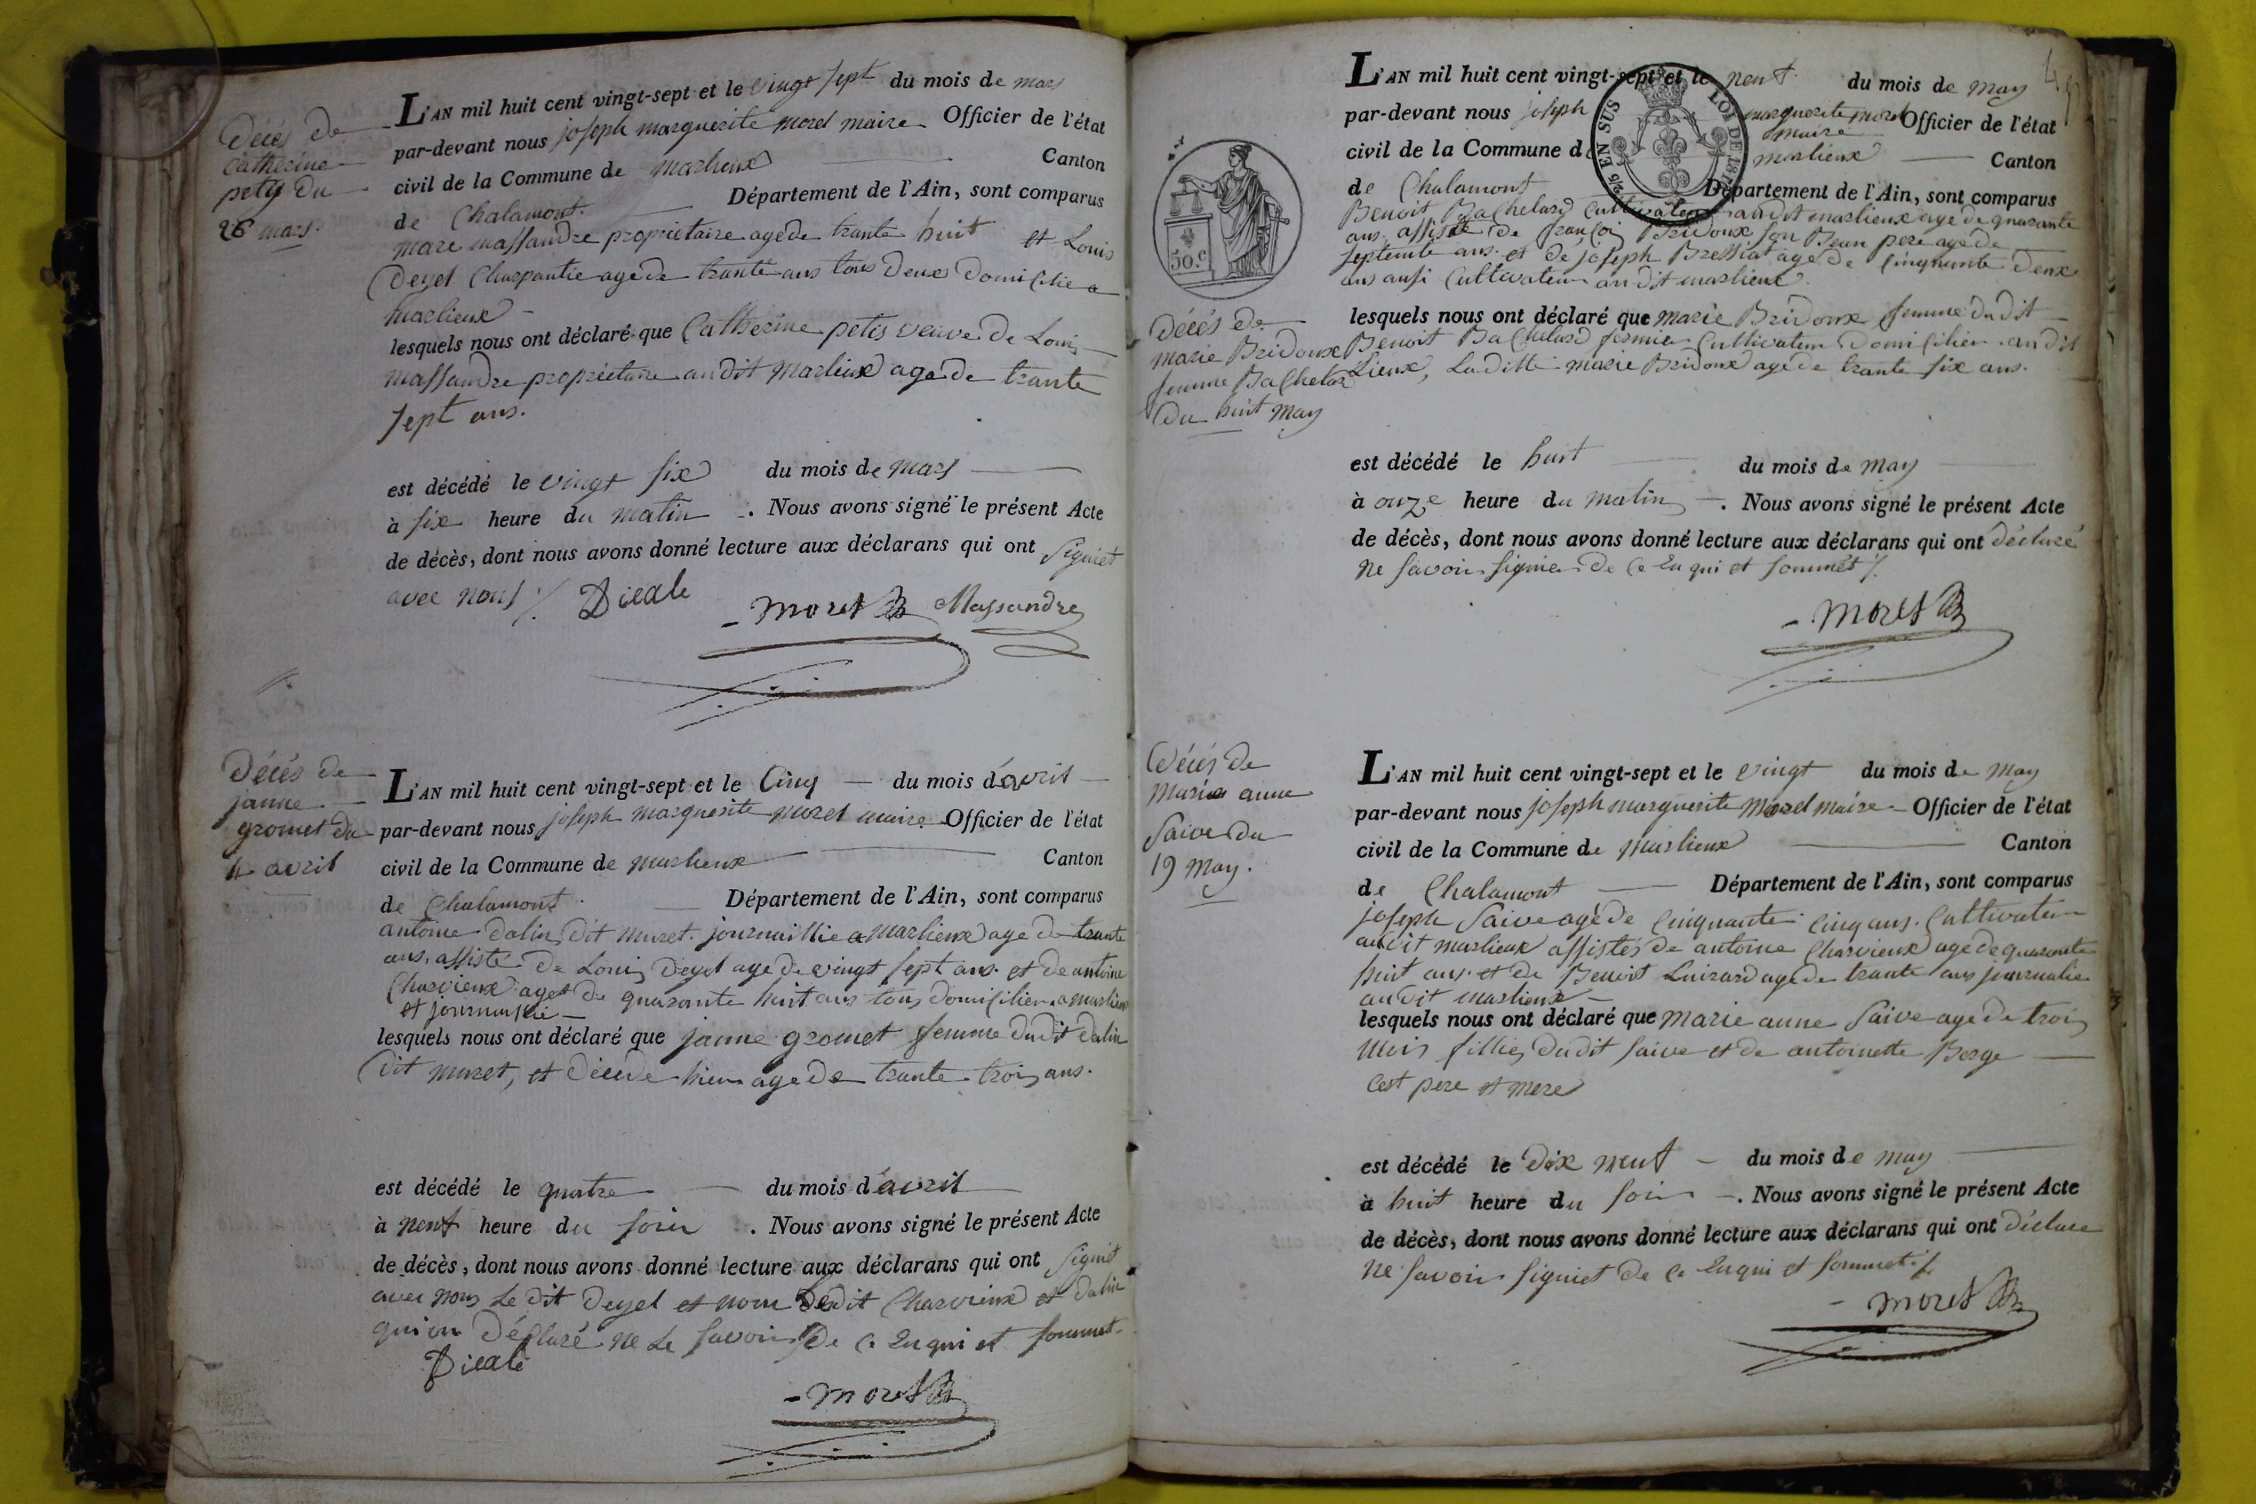 Décés de
Catherine
petis du
26 mars.
L'AN mil huit cent vingt-sept et le vingt sept du mois de mars
par-devant nous joseph marguerite morel maire Officier de l'état
civil de la Commune de marlieux Canton
de Chalamont. Département de l'Ain, sont comparus
marc massandre proprietaire age de trante huit et Louis
Deyel Charpantie age de trante ans tous deux Domicilie a
marlieux
lesquels nous ont déclaré que Catherine petis veuve de Louis
massandre proprietaire audit Marlieux age de trante
sept ans.
est décédé le vingt six du mois de mars
à six heure du matin. Nous avons signé le présent Acte
de décès, dont nous avons donné lecture aux déclarans qui ont signiet
avec nous
morel Massandre
Décés de
janne
gromet du
4 avril
L'AN mil huit cent vingt-sept et le Cinq du mois d'avril
par-devant nous joseph marguerite morel maire Officier de l'état
civil de la Commune de marlieux Canton
de Chalamont. Département de l'Ain, sont comparus
antoine dalin dit muret journaillie a marlieux age de trante
ans. assisté de Louis Deyel age de vingt sept ans. et de antoine
Charvieux aget de quarante huit ans tous domicilier a marlieux
et journaillie
lesquels nous ont déclaré que janne gromet femme dudit dalin
dit muret, et décédé hier age de trante trois ans.
est décédé le quatre du mois d'avril
à neuf heure du soir. Nous avons signé le présent Acte
de décès, dont nous avons donné lecture aux déclarans qui ont signiet
avec nous Le dit Deyel et nom ledit Charvieux et dalin
qui on Déclaré ne Le savoir De ce Enqui et sommet
morel
45
L'AN mil huit cent vingt-sept et le neuf du mois de may
par-devant nous joseph marguerite morel Officier de l'état
maire
civil de la Commune de marlieux Canton
de Chalamont Département de l'Ain, sont comparus
EN SUS
LOI DE
50.c
Benoit Bachelard Cultivateur audit marlieux age de quarante
ans assisté de françoi Bridoux son Beau pere age de
septente ans. et de joseph Bressiat age de Cinquante Deux
ans ausi Cultivateur audit marlieux.
lesquels nous ont déclaré que marie Bridoux femme dudit
Benoit Bachelard fermier Cultivateur Domicilier audit
Lieux, Laditte marie Bridoux age de trante six ans.
Décés de
marie Bridoux
femme Bachelard
Du huit May
est décédé le huit du mois de may
à onze heure du matin. Nous avons signé le présent Acte
de décès, dont nous avons donné lecture aux déclarans qui ont déclaré
ne savoir signier de ce Enqui et sommet
morel
Décés de
Marie anne
Saive du
19 may.
L'AN mil huit cent vingt-sept et le vingt du mois de may
par-devant nous joseph marguerite morel maire Officier de l'état
civil de la Commune de Marlieux Canton
de Chalamont Département de l'Ain, sont comparus
joseph Saive agé de Cinquante Cinq ans. Cultivateur
audit marlieux assistés de antoine Charvieux age de quarante
huit ans. et de Benoit Luizard age de trante ans journalie
audit marlieux
lesquels nous ont déclaré que marie anne Saive age de trois
mois fillies dudit Saive et de antoinette Berge
cest pere et mere
est décédé le dix neuf du mois de may
à huit heure du soir. Nous avons signé le présent Acte
de décès, dont nous avons donné lecture aux déclarans qui ont déclare
ne savoir signiet de ce Enqui et sommet
morel